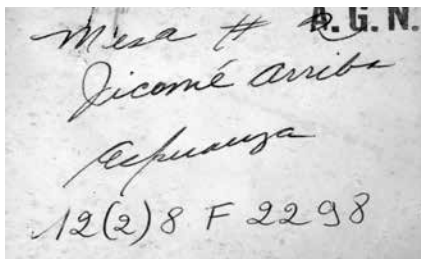 Mesa # 2 A. G. N.
Jicomé arriba
Esperanza
12(2)8 F 2298